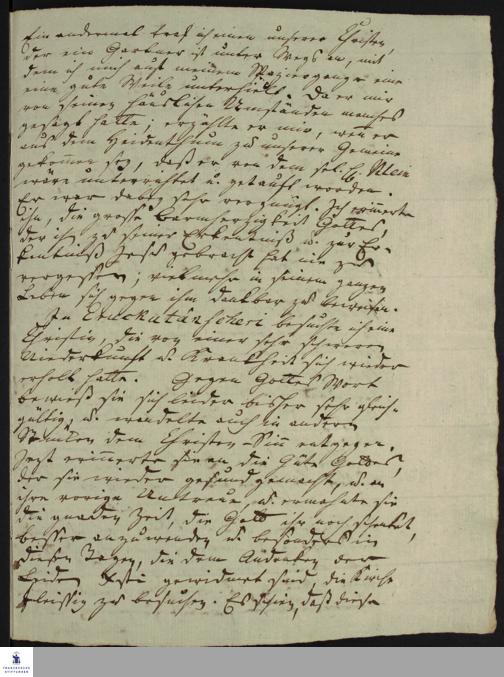 Ein andermal traf ich einen unserer Christen,
der ein Gartner ist unter Wegs an, mit
dem ich mich auf meinem Spaziergange eine
eine gute Weile unterhielt. Da er mir
von seinen häuslichen Umständen manches
gesagt hatte; erzählte er mir, wie er
aus dem Heidenthum zu unserer Gemeine
gekommen sey, daß er von dem sel. H. Klein
wäre unterrichtet u. getauft worden.
Er war dabey sehr vergnügt. Ich erinnerte
ihn, die große Barmherzigkeit Gottes,
der ihn zu seiner Erkenntniß u. zur Er-
kentniß Jesu gebracht hat nie zu
vergessen; vielmehr in seinem ganzen
Leben sich gegen ihn dankbar zu beweisen.
In Eruckutanscheri besuchte ich eine
Christin, die von einer sehr schweren
Niederkunft u. Krankheit sich wieder
erholt hatte. Gegen Gottes Wort
bewieß sie sich leider bisher sehr gleich-
gültig, u. wandelte auch in andern
Stücken dem Christen-Sinn entgegen.
Jezt erinnerte sie an die Güte Gottes,
der sie wieder gesund gemacht, u. an
ihre vorige Untreue, u. ermahnte sie
die gnaden Zeit, die Gott ihr noch schenket,
besser anzuwenden u. besonders in
diesen Tagen, die dem Andenken der
Leiden Jesu gewidmet sind, die Kirche
fleissig zu besuchen. Es schien, daß diese
FRANCKESCHE
STIFTUNGEN